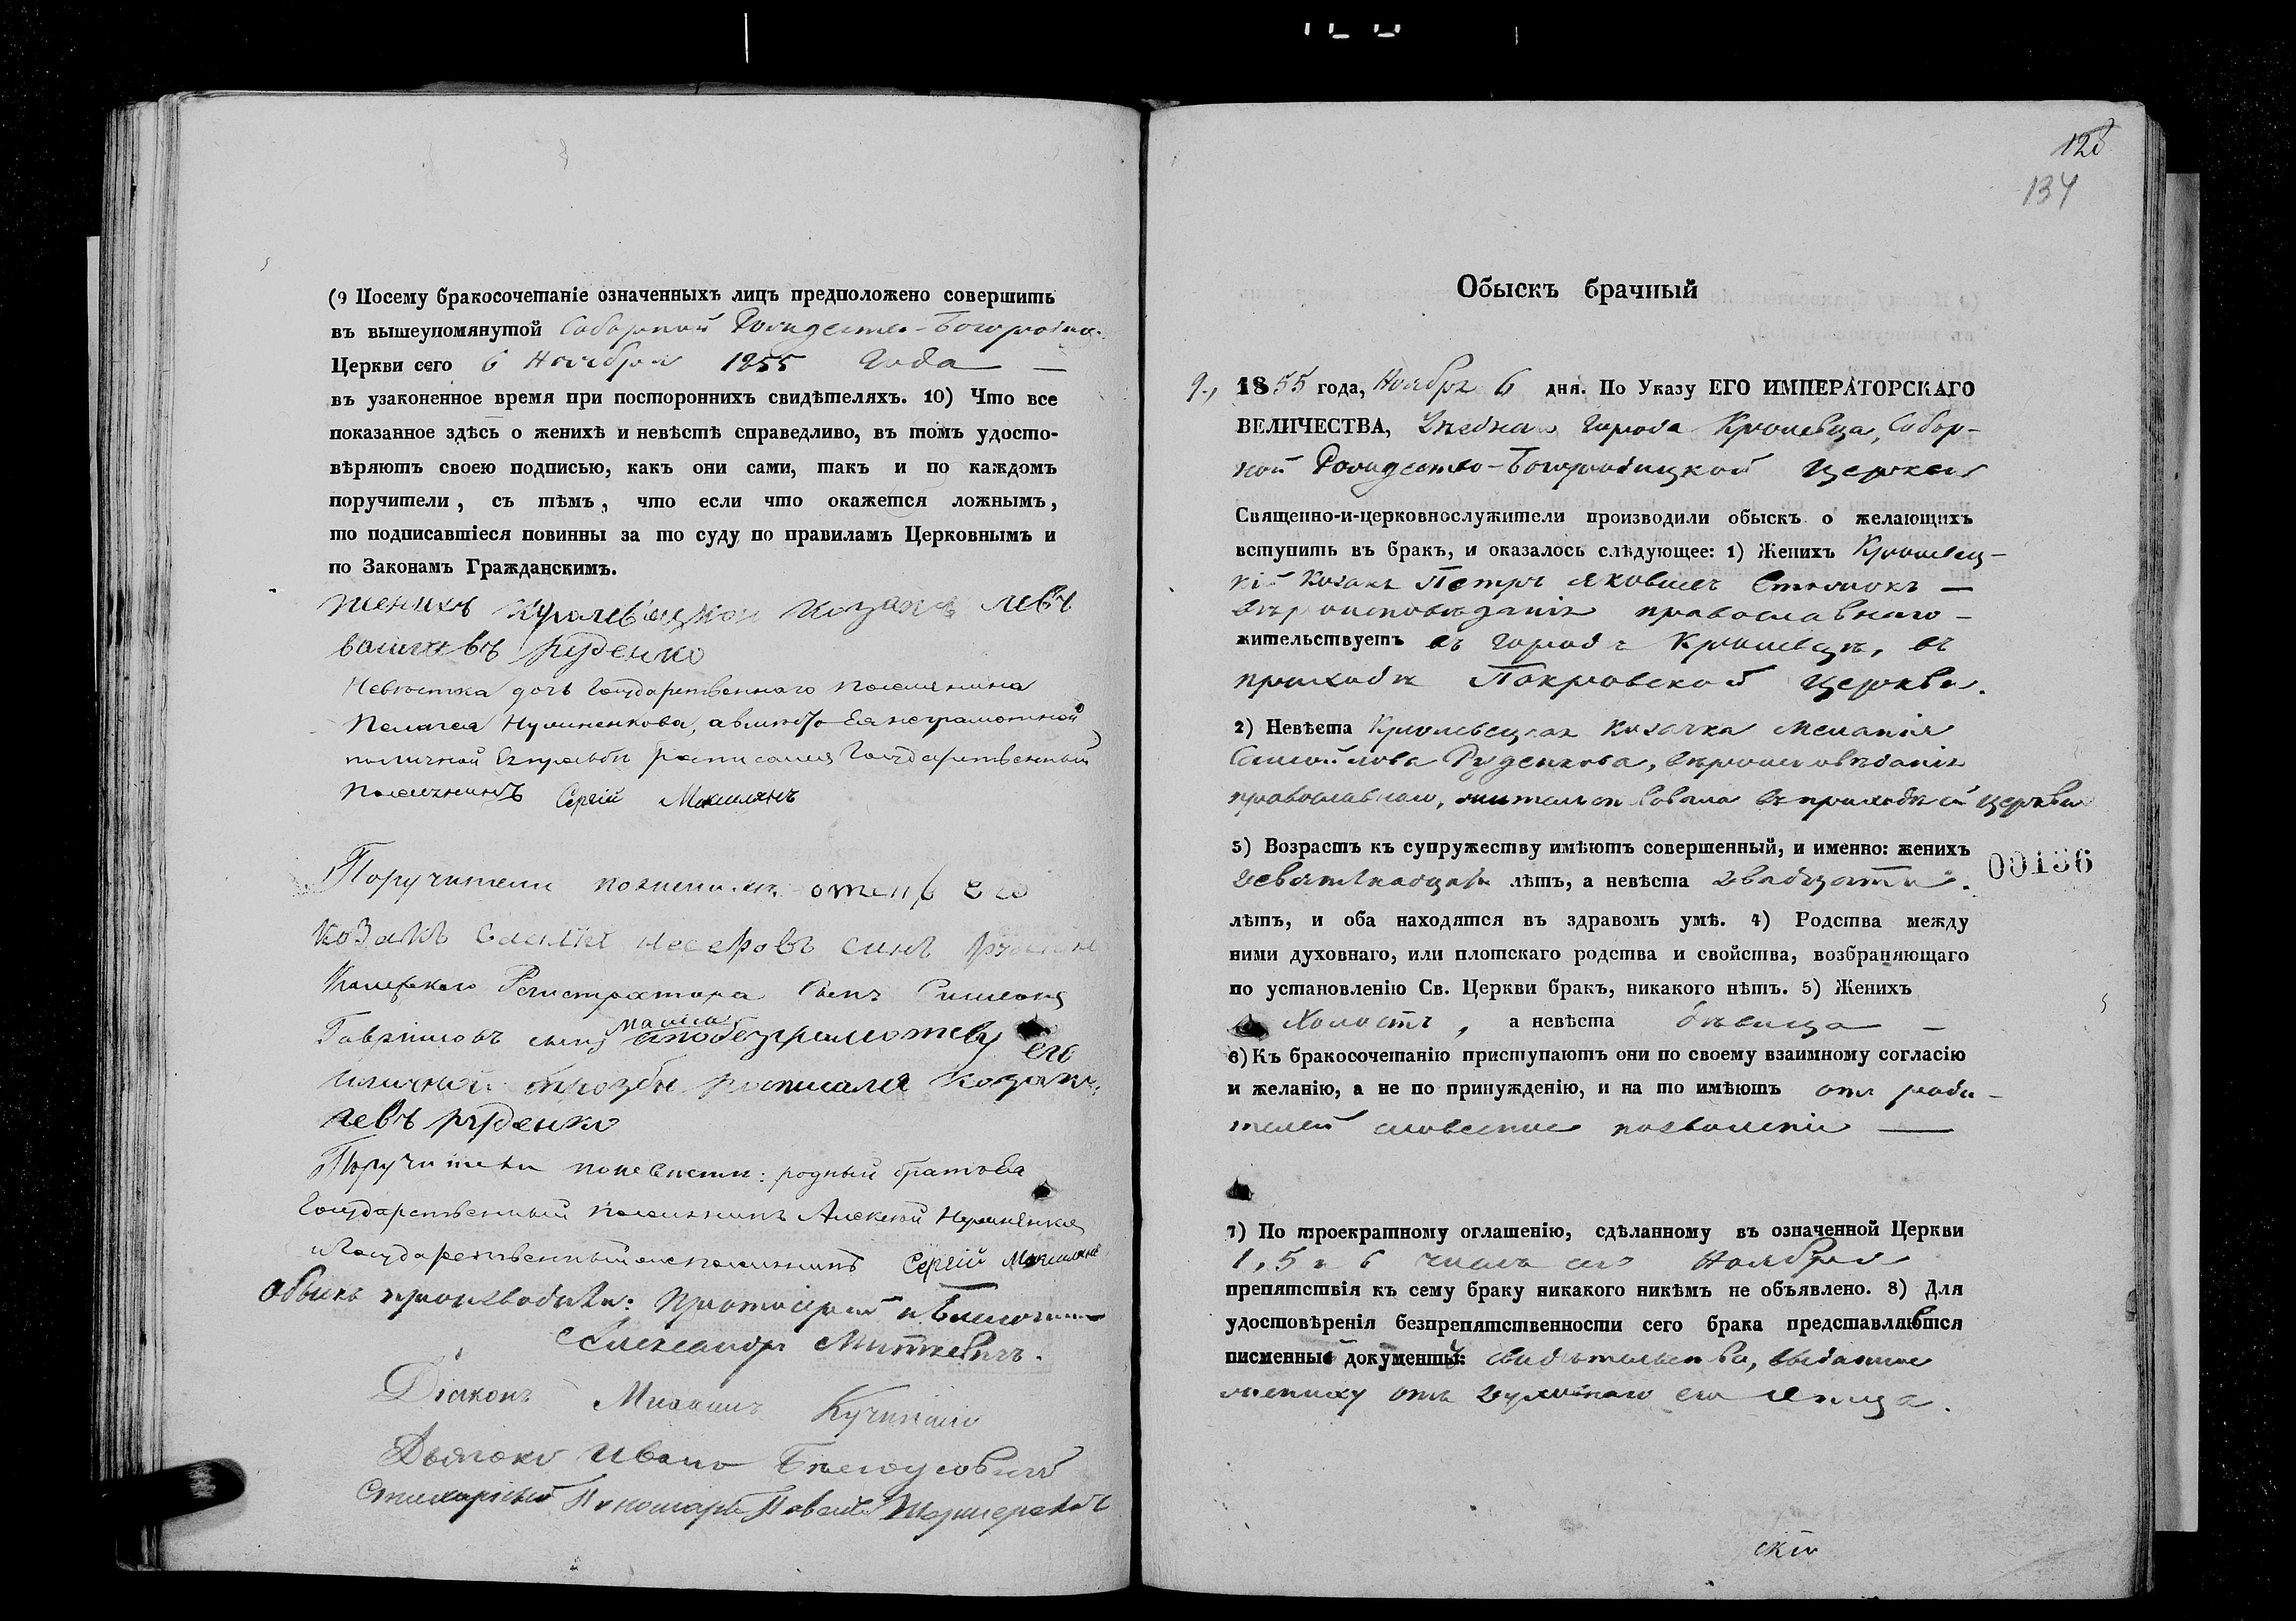 (9 Посему бракосочетаніе означенныхъ лицъ предположено совершить
въ вышеупомянутой Соборной Рождество-Богородиц.
Церкви сего 6 Ноября 1855 года —
въ узаконенное время при постороннихъ свидѣтеляхъ. 10) Что все
показанное здѣсь о женихѣ и невѣстѣ справедливо, въ томъ удосто-
вѣряютъ своею подписью, какъ они сами, такъ и по каждомъ
поручители, съ тѣмъ, что если что окажется ложнымъ,
то подписавшіеся повинны за то суду по правиламъ Церковнымъ и
по Законамъ Гражданскимъ.
женихъ козакъ левъ
руденко
Невюстка дочь Государственнаго поселянина
Пелагея а вместо Ея неграмотной
по личной Ея прозьбы росписался Государственный
Поселянинъ Сергій
Поручители по женихе отецъ его
козакъ Василій синъ
Регистратора Симеонъ
Гавриловъ сынъ
росписался козакъ
левъ руденко
Поручители по невести: родный братъ Ея
Государственный поселянинъ Алексей
и Государственный поселянинъ Сергій
Обыскъ производили: Протоиерей и Благочинный
Александръ Миткевичъ.
Діаконъ Михаилъ
Дьячокъ Иванъ
Стихарный Пономарь Павелъ
128
134
Обыскъ брачный
9., 1855 года, Ноября 6 дня. По Указу ЕГО ИМПЕРАТОРСКАГО
ВЕЛИЧЕСТВА, города Кролевца, Собор-
ной Рождество-Богородицкой Церкви
Священно-и-церковнослужители производили обыскъ о желающихъ
вступить въ бракъ, и оказалось слѣдующее: 1) Женихъ Кролевец-
кій козакъ Петръ Яковлевъ —
вѣроисповѣданія православнаго —
жительствуетъ въ городѣ Кролевцѣ, въ
приходѣ Покровской Церкви.
2) Невѣста Кролевецкая козачка Меланія
Самойлова Руденкова, вѣроисповѣданія
православнаго, жительствовала въ приходѣ сей церкви
3) Возрастъ къ супружеству имѣютъ совершенный, и именно: женихъ
девятнадцать лѣтъ, а невѣста двадцати.
00136
лѣтъ, и оба находятся въ здравомъ умѣ. 4) Родства между
ними духовнаго, или плотскаго родства и свойства, возбраняющаго
по установленію Св. Церкви бракъ, никакого нѣтъ. 5) Женихъ
Холостъ, а невѣста дѣвица —
6) Къ бракосочетанію приступаютъ они по своему взаимному согласію
и желанію, а не по принужденію, и на то имѣютъ отъ роди-
телей словесное позволеніе —
7) По троекратному оглашенію, сдѣланному въ означенной Церкви
1, 5 и 6 числъ сего Ноября
препятствія къ сему браку никакого никѣмъ не объявлено. 8) Для
удостовѣренія безпрепятственности сего брака представляются
писменные документы: свидѣтельство, выданное
жениху отъ духовнаго его отца.